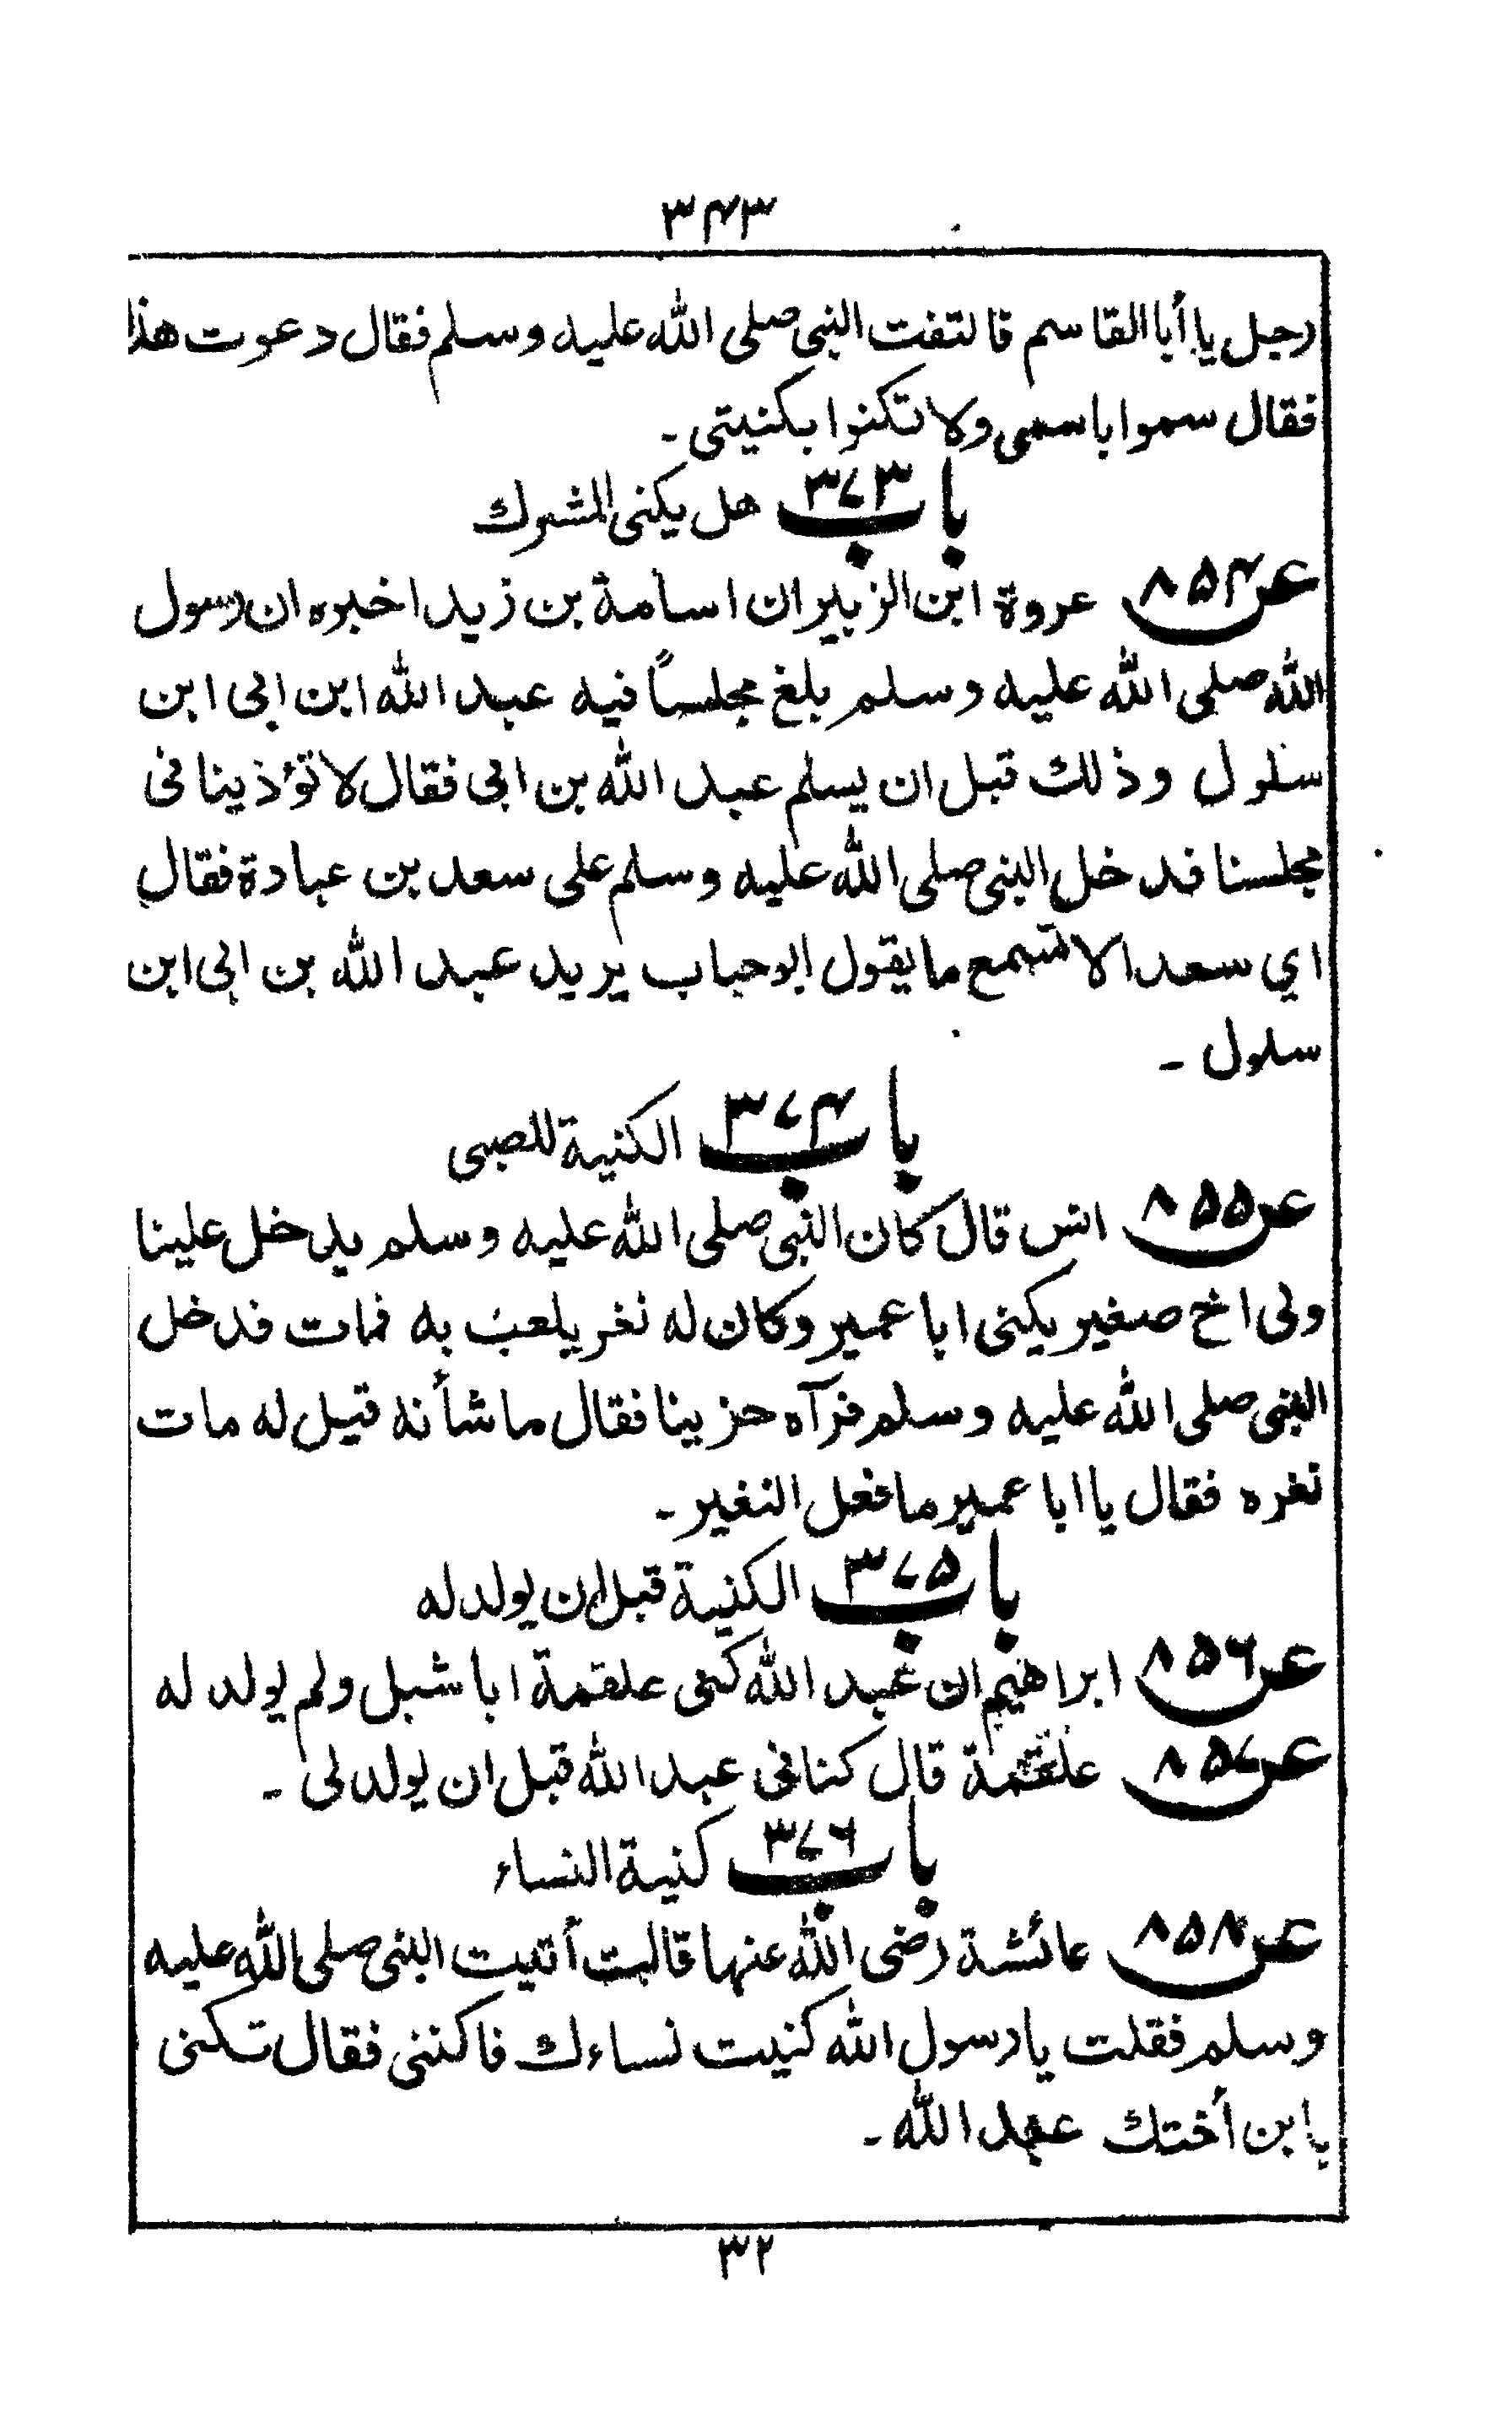 ۳۴۳
رجل يا أبا القاسم فالتفت النبى صلى الله عليه وسلم فقال دعوت هذا
فقال سموا باسمى ولا تكنوا بكنيتى ۔
باب ۳۷۳ هل يكنى المشرك
عن ۸۵۴ عروة ابن الزبير ان اسامة بن زيد اخبره ان رسول
الله صلى الله عليه وسلم بلغ مجلسًا فيه عبد الله ابن ابى ابن
سلول وذلك قبل ان يسلم عبد الله بن ابى فقال لا تؤذينا فى
مجلسنا فدخل النبى صلى الله عليه وسلم على سعد بن عبادة فقال
اي سعد الا تسمع ما يقول ابو حباب يريد عبد الله بن ابى ابن
سلول ۔
باب ۳۷۴ الكنية للصبى
عن ۸۵۵ انس قال كان النبى صلى الله عليه وسلم يدخل علينا
ولى اخ صغير يكنى ابا عمير وكان له نغر يلعب به فمات فدخل
النبى صلى الله عليه وسلم فرآه حزينا فقال ما شأنه قيل له مات
نغره فقال يا ابا عمير ما فعل النغير ۔
باب ۳۷۵ الكنية قبل ان يولد له
عن ۸۵۶ ابراهيم ان عبد الله كنى علقمة ابا شبل ولم يولد له
عن ۸۵۷ علقمة قال كنانى عبد الله قبل ان يولد لى ۔
باب ۳۷۶ كنية النساء
عن ۸۵۸ عائشة رضى الله عنها قالت أتيت النبى صلى الله عليه
وسلم فقلت يا رسول الله كنيت نساءك فاكننى فقال تكنى
بابن أختك عبد الله ۔
۳۲